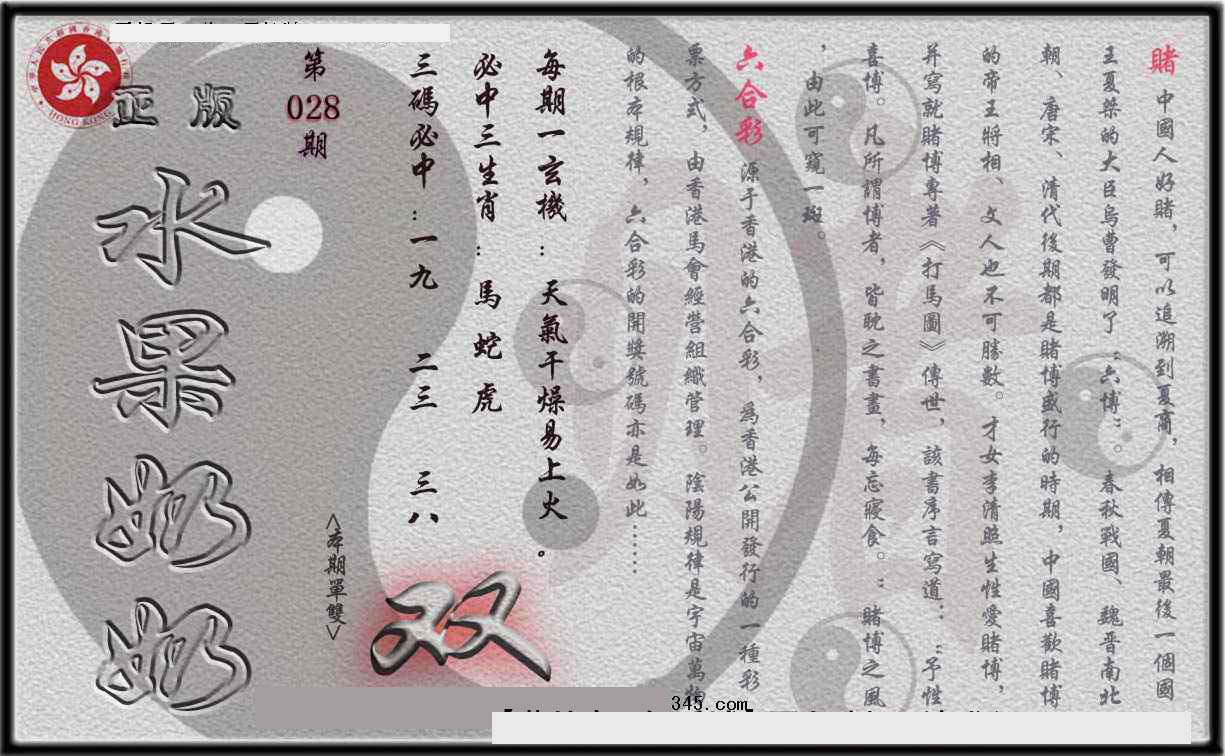 賭 中國人好賭，可以追溯到夏商，相傳夏朝最後一個國
王夏桀的大臣烏曹發明了“六博”。春秋戰國、魏晉南北
朝、唐宋、清代後期都是賭博盛行的時期，中國喜歡賭博
的帝王將相、文人也不可勝數。才女李清照生性愛賭博，
并寫就賭博專著《打馬圖》傳世，該書序言寫道：“予性
喜博。凡所謂博者，皆耽之書畫，每忘寢食。”賭博之風
，由此可窺一斑。
六合彩 源于香港的六合彩，為香港公開發行的一種彩
票方式，由香港馬會經營組織管理。陰陽規律是宇宙萬物
的根本規律，六合彩的開獎號碼亦是如此……
每期一玄機：天氣干燥易上火。
必中三生肖：馬 蛇 虎
三碼必中：一九 二三 三八
<本期單雙>
双
第
028
期
正版
水果奶奶
HONG KONG
345.com